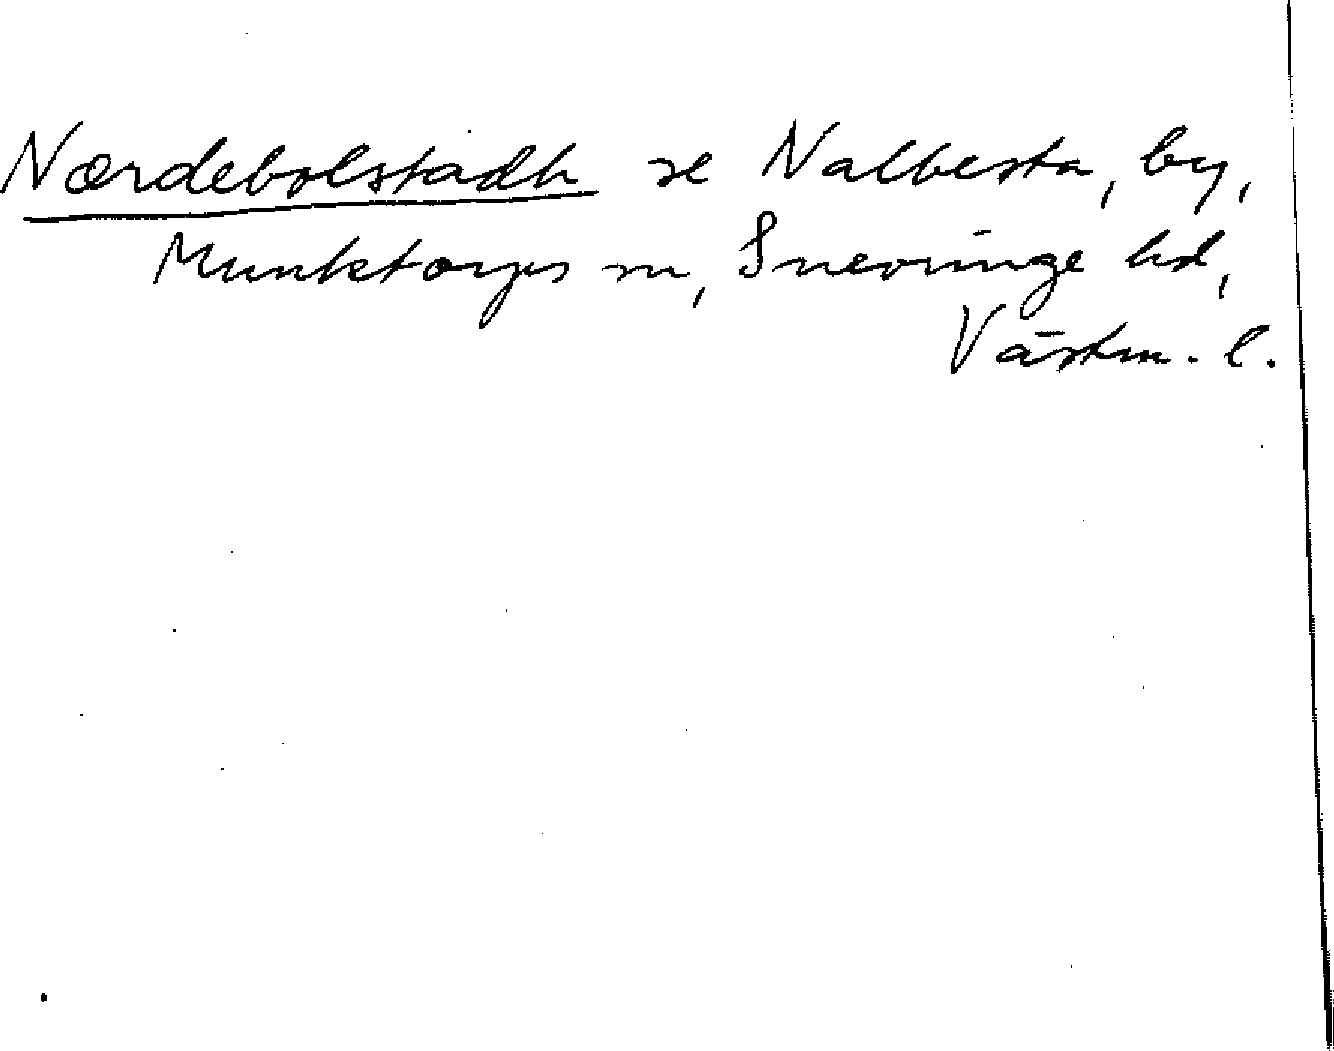 Nærdebolstadh se Nalbesta, by,
Munktorps sn, Snevringe hd,
Västm. l.